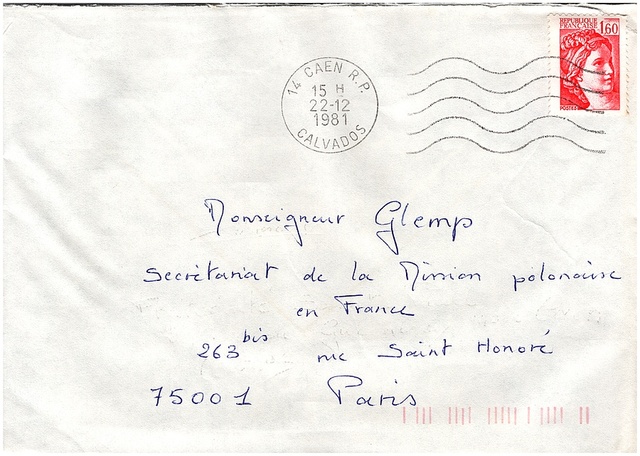 REPUBLIQUE
FRANÇAISE 1,60
POSTES
14 CAEN R.P.
15 H
22-12
1981
CALVADOS
Monseigneur Glemp
Secrétariat de la Mission polonaise
en France
263 bis rue Saint Honoré
75001 Paris